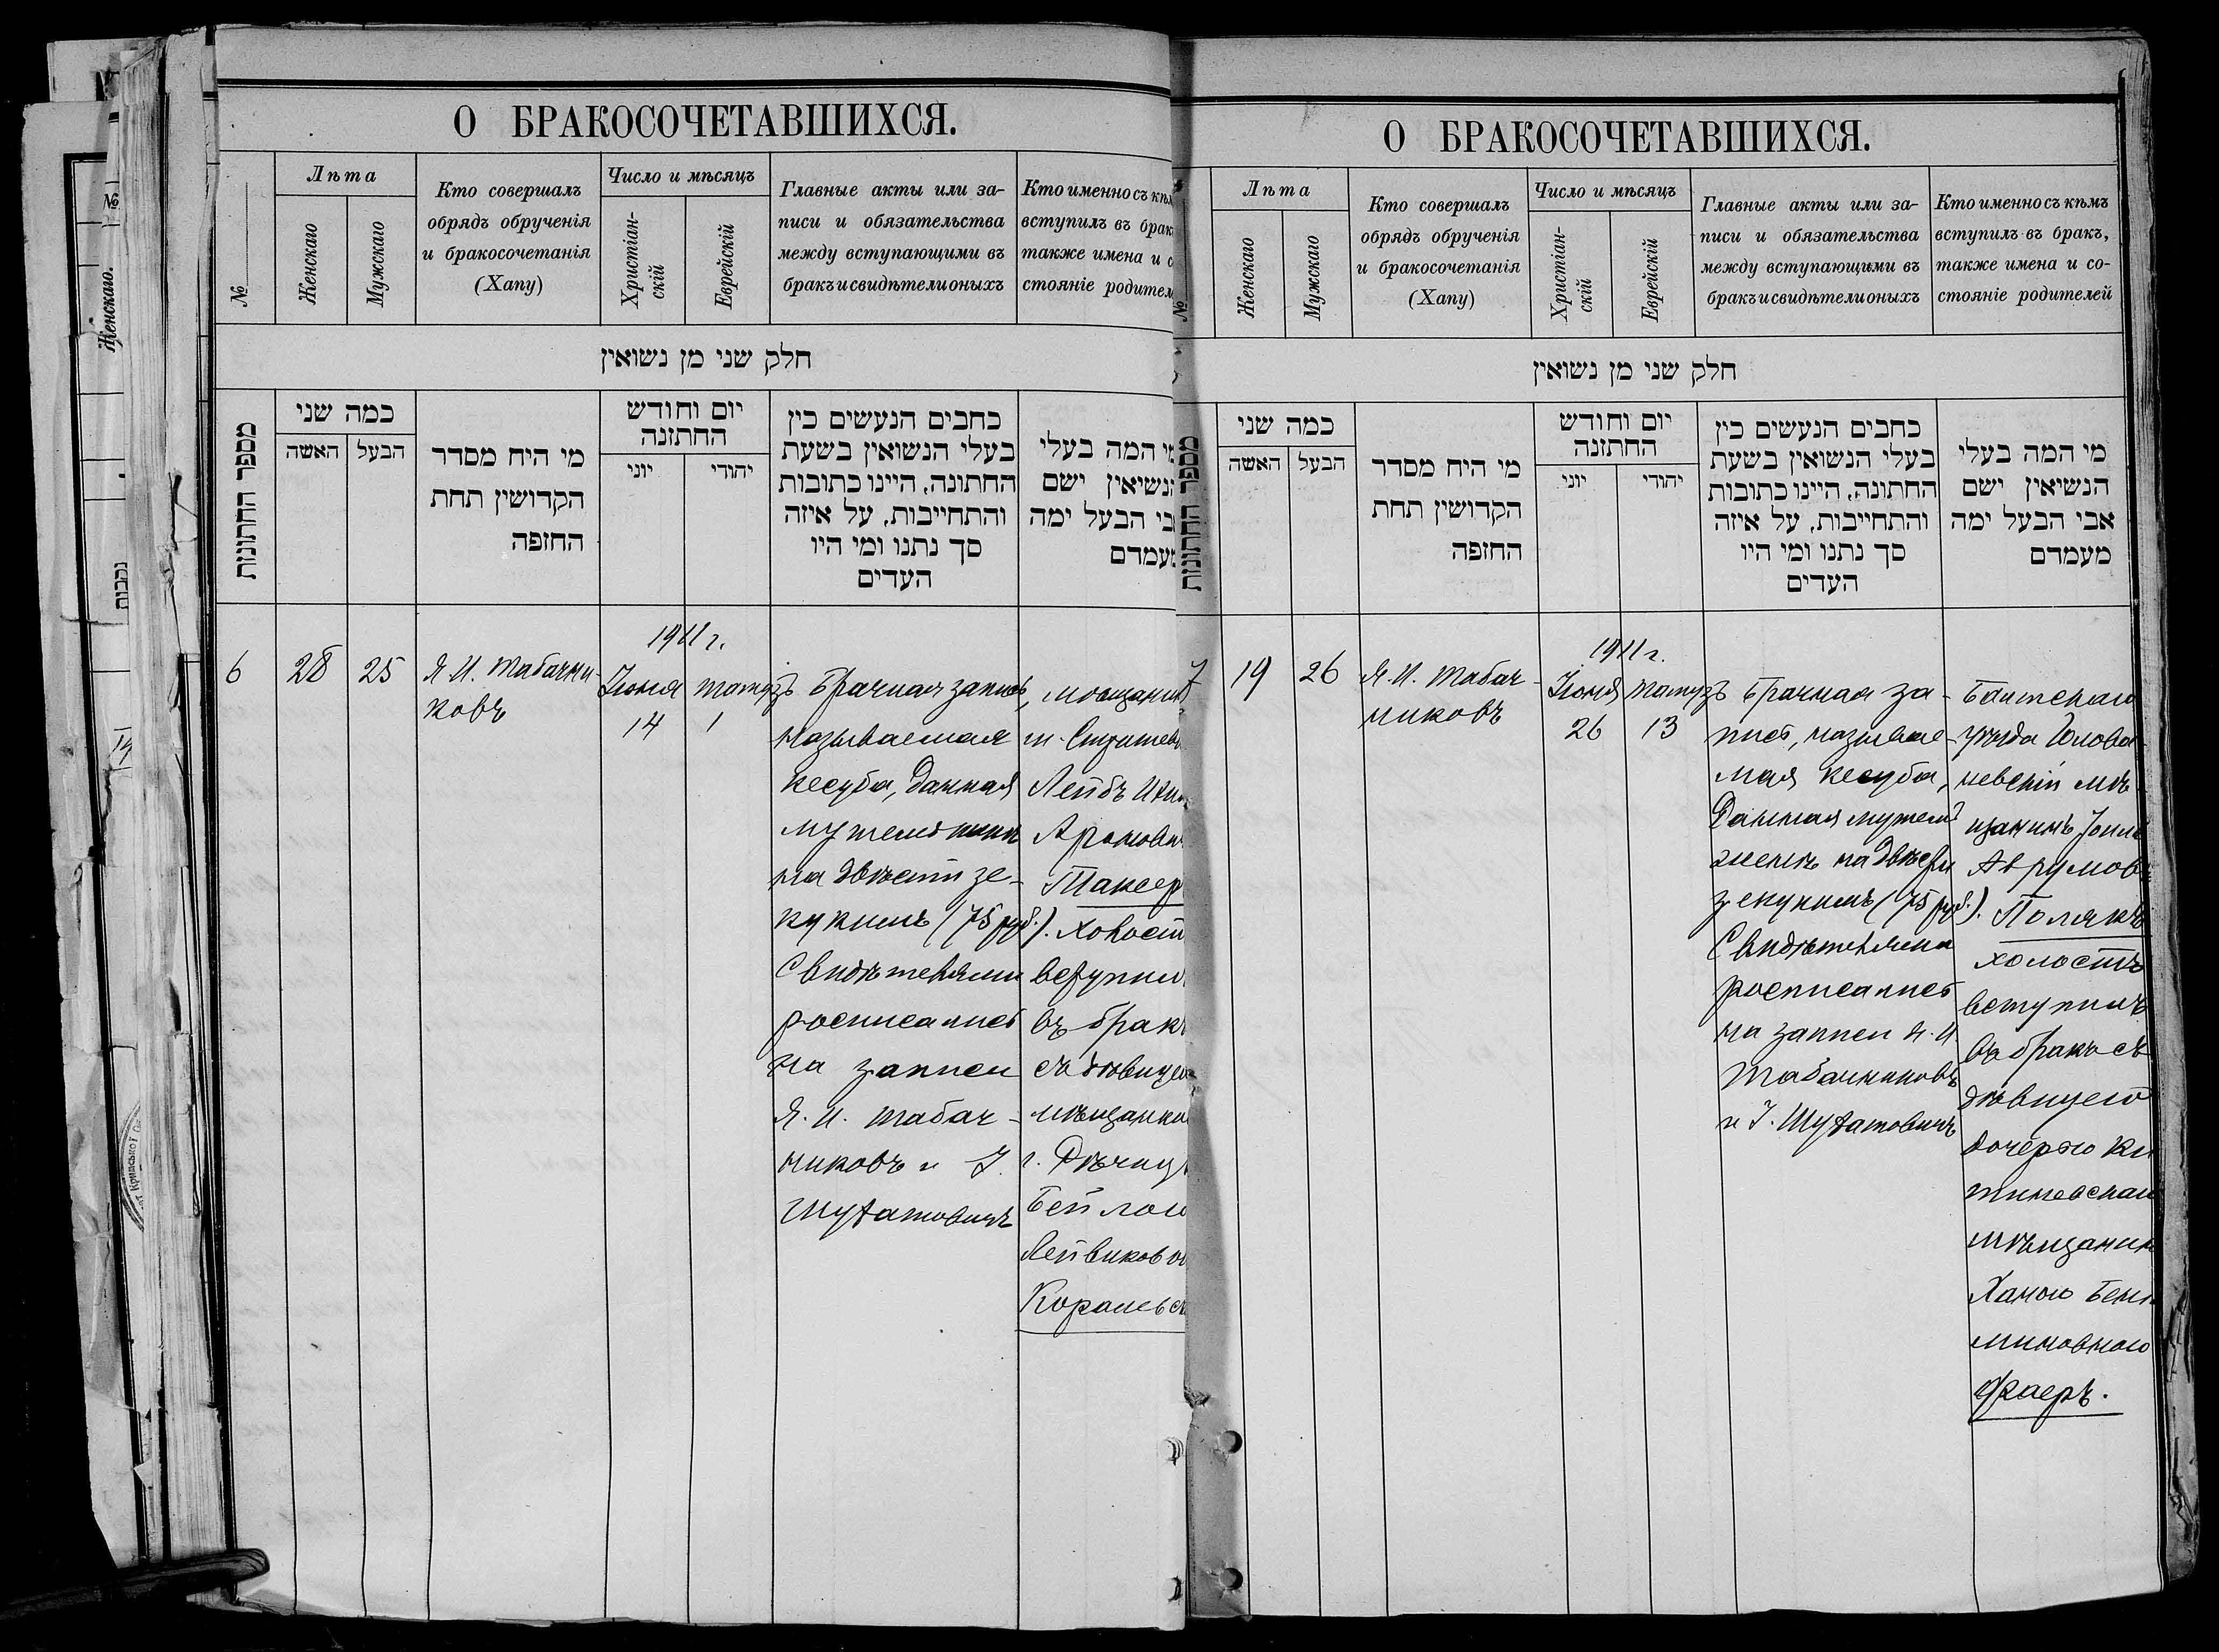 О БРАКОСОЧЕТАВШИХСЯ.
№
Лѣта
Женскаго
Мужскаго
Кто совершалъ
обрядъ обрученія
и бракосочетанія
(Хапу)
Число и мѣсяцъ
Христіан-
скій
Еврейскій
Главные акты или за-
писи и обязательства
между вступающими въ
бракъ и свидѣтели оныхъ
Кто именно съ кѣм
вступилъ въ брак
также имена и с
стояніе родител
חלק שני מן נשואין
מספר החתונות
כמה שני
האשה
הבעל
מי היח מסדר
הקדושין תחת
החזפה
יום וחודש
החתזנה
יוני
יהודי
כחבים הנעשים כין
בעלי הנשואין בשעת
החתונה, היינו כתובות
והתחייבות, על איזה
סך נתנו ומי היו
העדים
מי המה בעלי
הנשיאין ישם
אבי הבעל ימה
מעמדם
6
28
25
Я. И. Табачни-
ковъ
1911 г.
Іюня
14
Тамузъ
1
Брачная запись,
называемая
кесуба, данная
мужемъ
на двѣсти зе-
кукимъ (75 руб.).
Свидѣтелями
росписались
на записи
Я. И. Табач-
никовъ и І.
мѣщанин
Лейбъ
Аронович
Таксер
Холост
вступил
въ брак
съ дѣвицею
мѣщанко
г. Рѣчиц
Бейлою
Лейвиково
О БРАКОСОЧЕТАВШИХСЯ.
№
Лѣта
Женскаго
Мужскаго
Кто совершалъ
обрядъ обрученія
и бракосочетанія
(Хапу)
Число и мѣсяцъ
Христіан-
скій
Еврейскій
Главные акты или за-
писи и обязательства
между вступающими въ
бракъ и свидѣтели оныхъ
Кто именно съ кѣмъ
вступилъ въ бракъ,
также имена и со-
стояніе родителей
חלק שני מן נשואין
מספר החתונות
כמה שני
האשה
הבעל
מי היח מסדר
הקדושין תחת
החזפה
יום וחודש
החתזנה
יוני
יהודי
כחבים הנעשים כין
בעלי הנשואין בשעת
החתונה, היינו כתובות
והתחייבות, על איזה
סך נתנו ומי היו
העדים
מי המה בעלי
הנשיאין ישם
אבי הבעל ימה
מעמדם
7
19
26
Я. И. Табач-
никовъ
1911 г.
Іюня
26
Тамузъ
13
Брачная за-
пись, называе-
мая кесуба,
данная мужемъ
женѣ на двѣсти
зекукимъ (75 руб.).
Свидѣтелями
росписались
на записи Я. И.
Табачниковъ
и І.
Балтскаго
уѣзда Голова-
невскій мѣ-
щанинъ
Аврумов
Полякъ
холостъ
вступилъ
въ бракъ съ
дѣвицею
дочерью Ки
шиневскаго
мѣщанин
Ханою Бенья
миновною
Фраеръ.